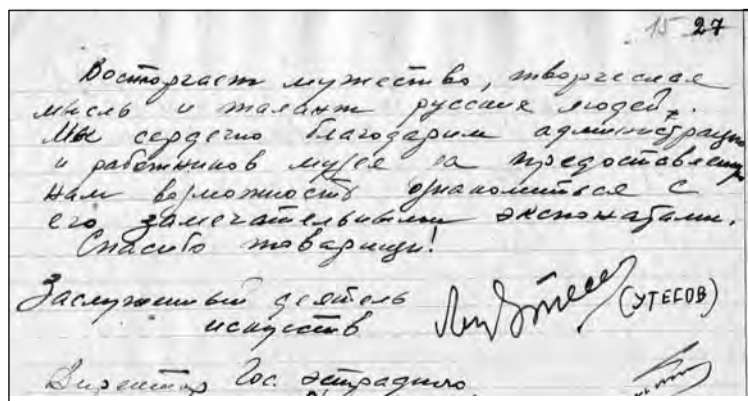 15 27
Восторгает мужество, творческая
мысль и талант русских людей.
Мы сердечно благодарим администрацию
и работников музея за предоставленную
нам возможность ознакомиться с
его замечательными экспонатами.
Спасибо товарищи!
Заслуженный деятель
искусств
(УТЕСОВ)
Директор Гос. эстрадного